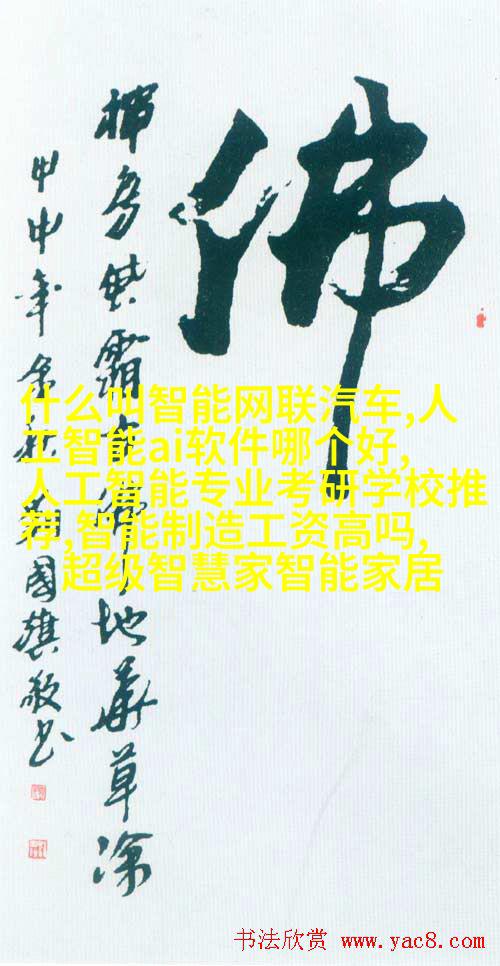 佛
霜 佛地 草凉
甲申年 秋 國旗敬书
什么叫智能网联汽车,人
工智能ai软件哪个好,
人工智能专业考研学校推
荐,智能制造工资高吗,
超级智慧家智能家居
书法欣赏 www.yac8.com